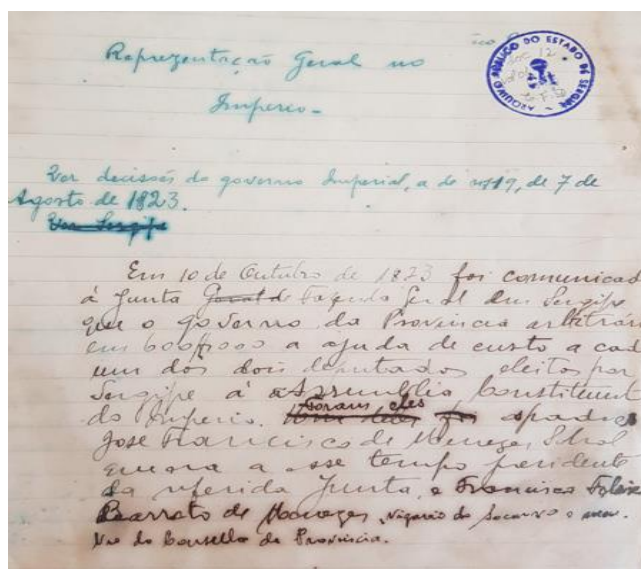 Reprezentação Geral no
Imperio -
ARQUIVO PÚBLICO DO ESTADO DE SERGIPE
Ver decisões do governo Imperial, a de nº 119, de 7 de
Agosto de 1823.
Em 10 de Outubro de 1823 foi comunicad
á Junta Geral de Fazenda Geral em Sergipe
que o governo da Provincia arbitrára
em 600$000 a ajuda de custo a cad
um dos dois deputados eleitos por
Sergipe á Assembléa Constituint
do Imperio. Foram eles o padre
José Francisco de Menezes Sobral
a esse tempo prezidente
da referida Junta, e Francisco
Barreto de Menezes, vigario do Socorro e
do Conselho de Provincia.